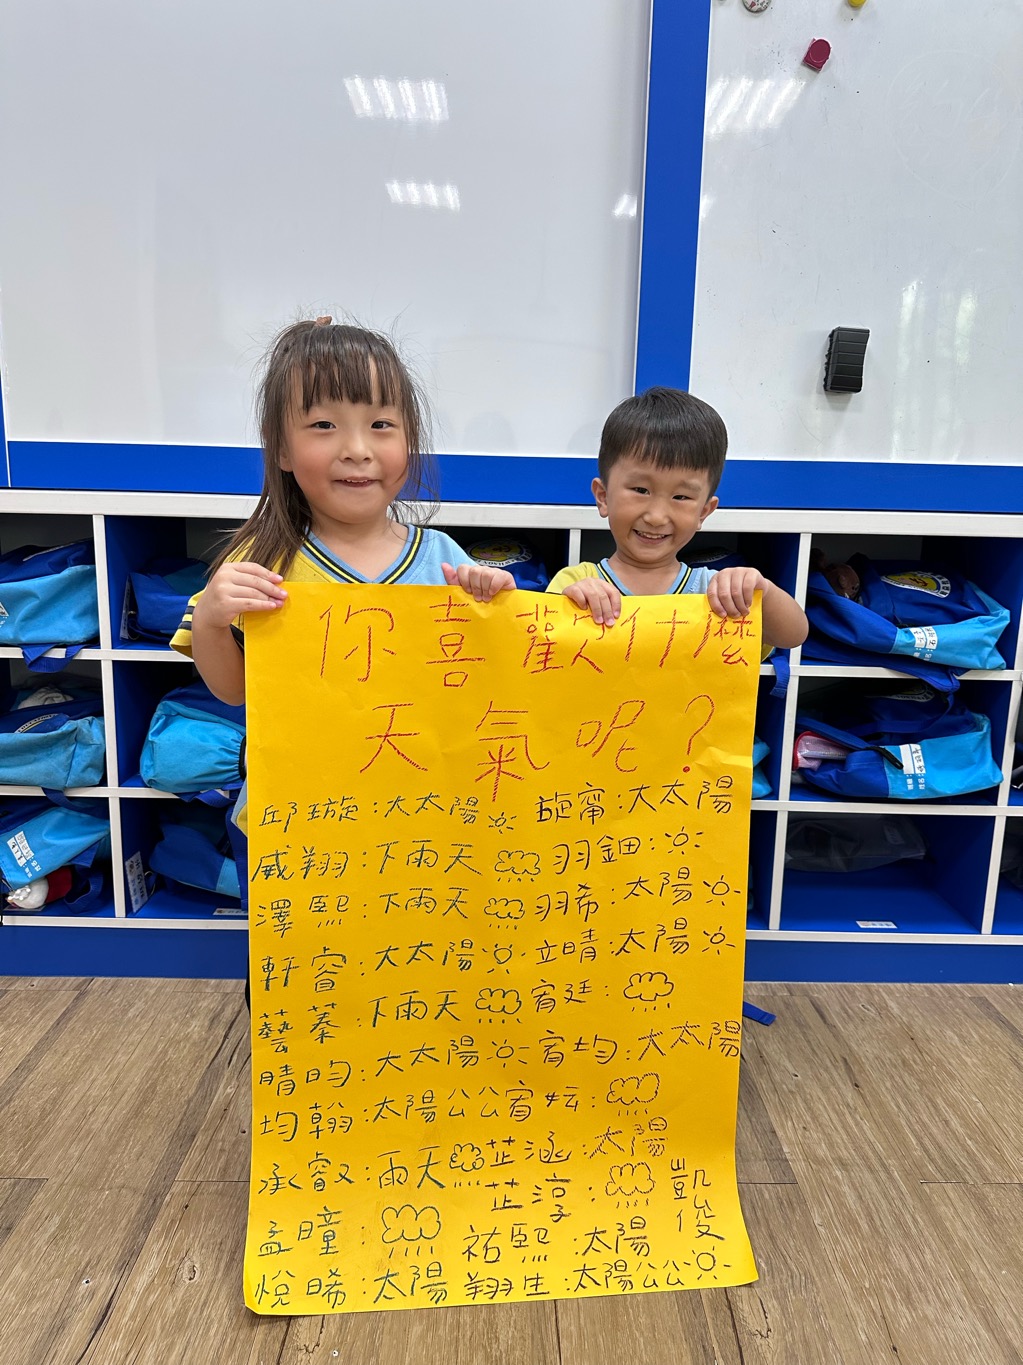 你喜歡什麼
天氣呢?
邱玏旋:大太陽 旋甯:大太陽
威翔:下雨天 羽鈿:
澤熙:下雨天 羽希:太陽
軒睿:大太陽 立晴:太陽
藝蓁:下雨天 宥廷:
晴昀:大太陽 宥均:大太陽
均翰:太陽公公 宥妘:
承叡:雨天 芷涵:太陽
芷淳: 凱俊
孟瞳: 祐熙:太陽
悅晞:太陽 翔生:太陽公公